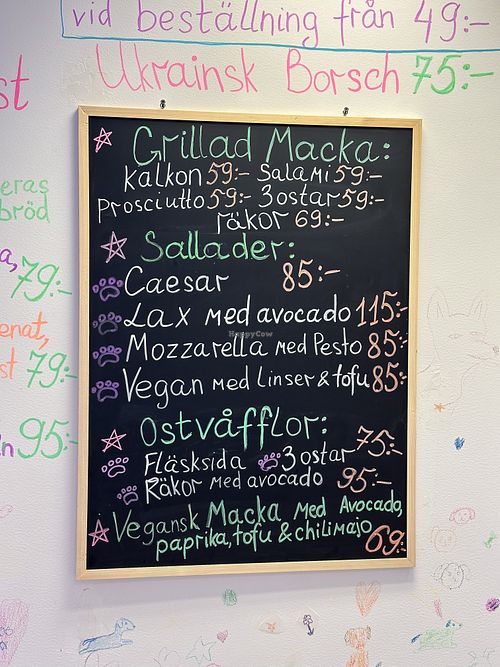 vid beställning från 49:-
Ukrainsk Borsch 75:-
st
eras
bröd
79:-
enat,
st 79:-
n 95:-
Grillad Macka:
Kalkon 59:- Salami 59:-
Prosciutto 59:- 3ostar 59:-
räkor 69:-
Sallader:
Caesar 85:-
Lax med avocado 115:-
Mozzarella med Pesto 85:-
Vegan med Linser & tofu 85:-
Ostvåfflor:
Fläsksida 3 ostar 75:-
Räkor med avocado 95:-
Vegansk Macka med Avocado,
paprika, tofu & chilimajo 69:-
HappyCow